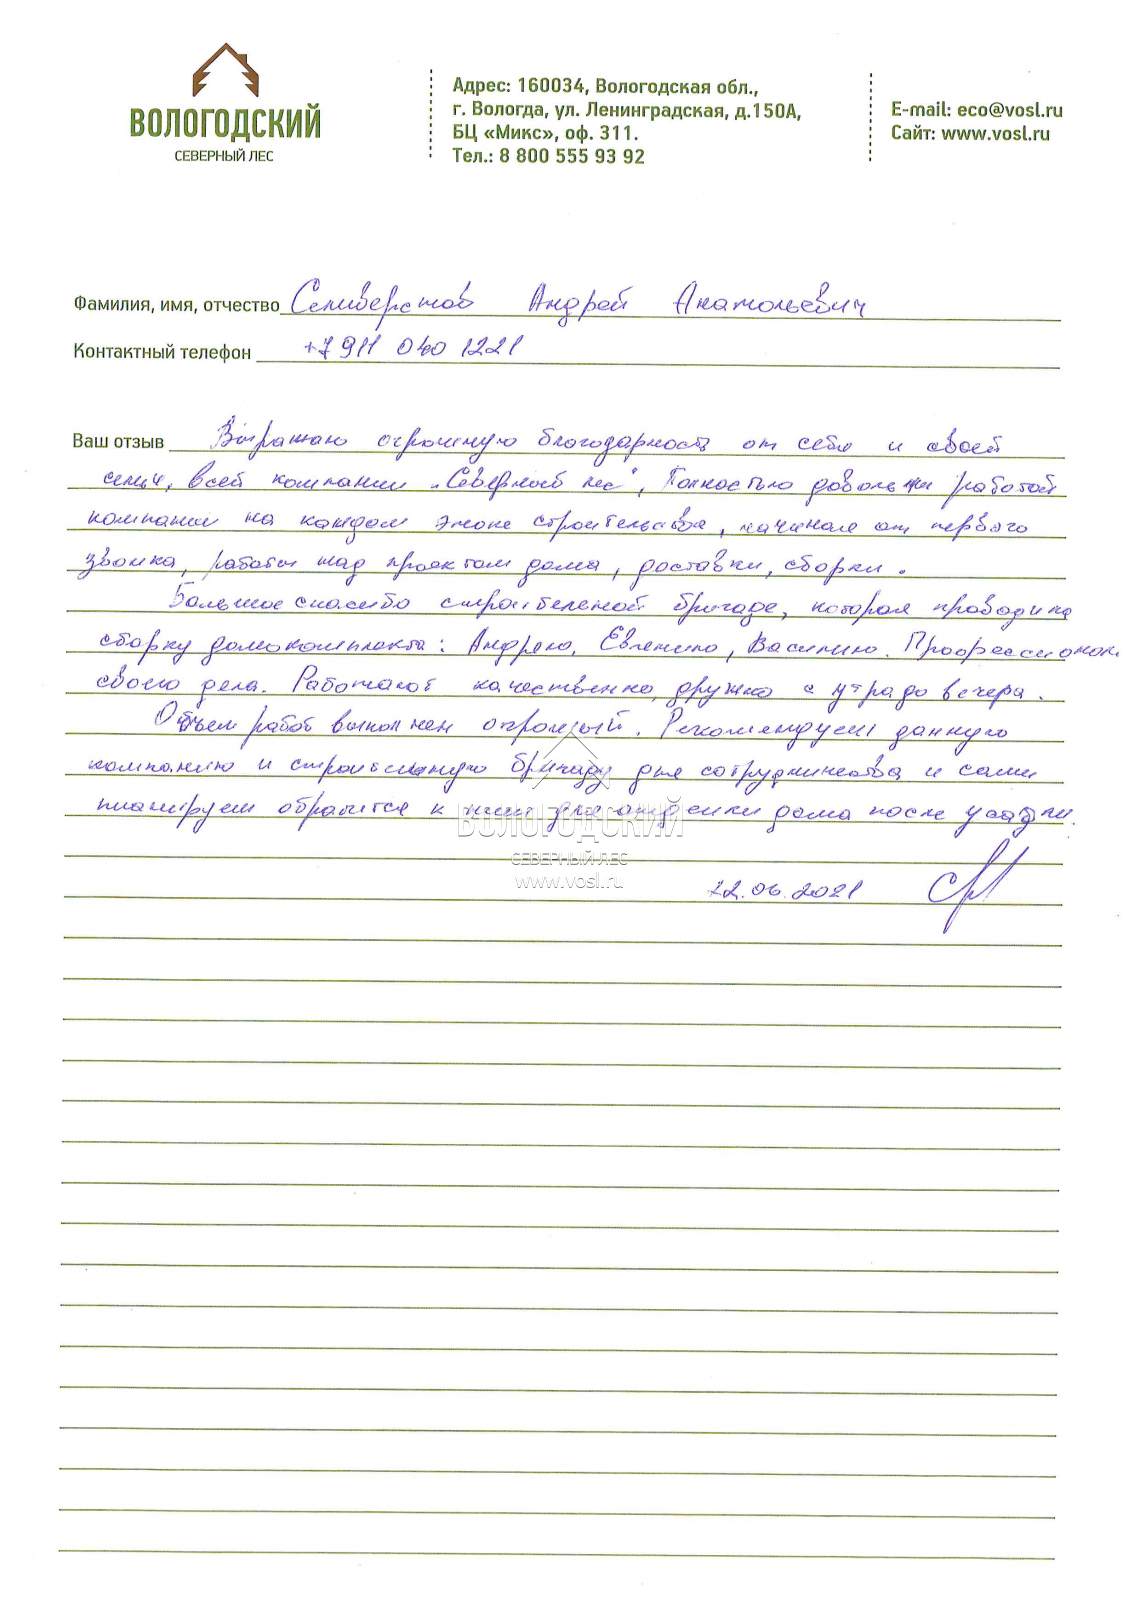 ВОЛОГОДСКИЙ
СЕВЕРНЫЙ ЛЕС
Адрес: 160034, Вологодская обл.,
г. Вологда, ул. Ленинградская, д.150А,
БЦ «Микс», оф. 311.
Тел.: 8 800 555 93 92
E-mail: eco@vosl.ru
Сайт: www.vosl.ru
Фамилия, имя, отчество Селиверстов Андрей Анатольевич
Контактный телефон +7 911 040 1221
Ваш отзыв Выражаю огромную благодарность от себя и своей
семьи, всей компании „Северный лес", Полностью довольны работой
компании на каждом этапе строительства, начиная от первого
звонка, работы над проектом дома, доставки, сборки.
Большое спасибо строительной бригаде, которая проводила
сборку домокомплекта: Андрею, Евгению, Василию. Профессионал
своего дела. Работают качественно, дружно с утра до вечера.
Объем работ выполнен огромный. Рекомендуем данную
компанию и строительную бригаду для сотрудничества и сами
планируем обратится к ним для отделки дома после усадки.
ВОЛОГОДСКИЙ
СЕВЕРНЫЙ ЛЕС
www.vosl.ru
22.06.2021